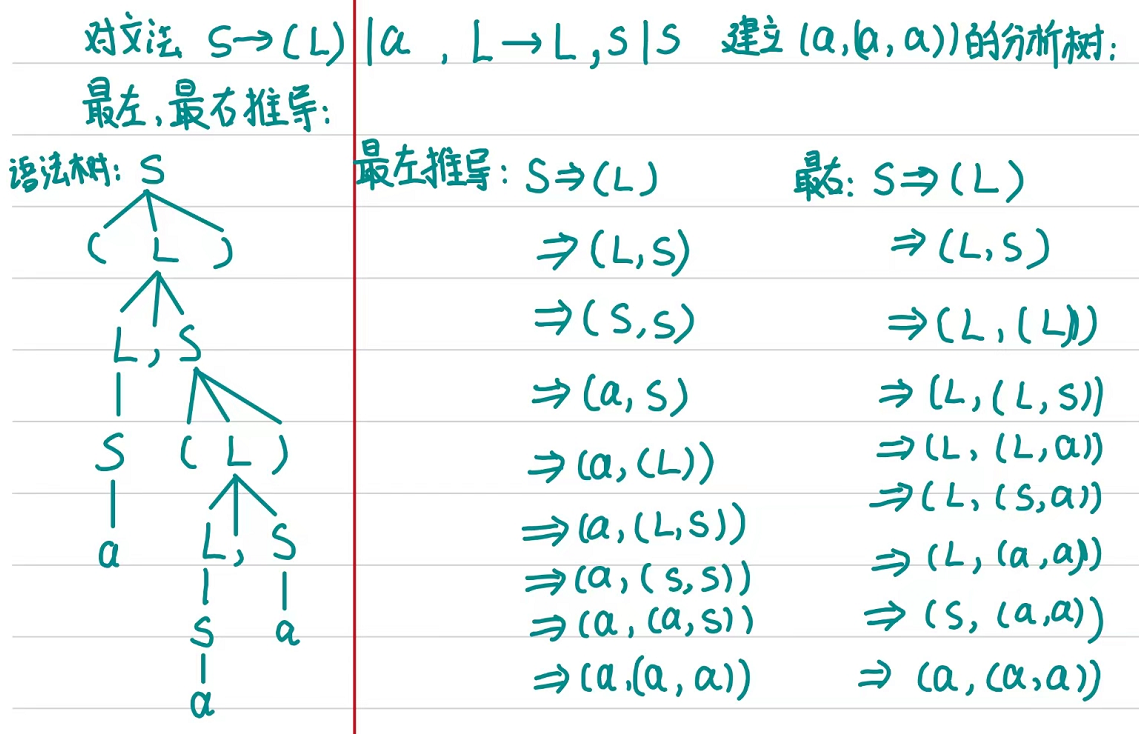 对文法 S→(L)|a , L→L,S|S 建立(a,(a,a))的分析树:
最左,最右推导:
语法树: S
( L )
L , S
S ( L )
a L , S
S a
a
最左推导: S⇒(L)
⇒(L,S)
⇒(S,S)
⇒(a,S)
⇒(a,(L))
⇒(a,(L,S))
⇒(a,(S,S))
⇒(a,(a,S))
⇒(a,(a,a))
最右: S⇒(L)
⇒(L,S)
⇒(L,(L))
⇒(L,(L,S))
⇒(L,(L,a))
⇒(L,(S,a))
⇒(L,(a,a))
⇒(S,(a,a))
⇒(a,(a,a))